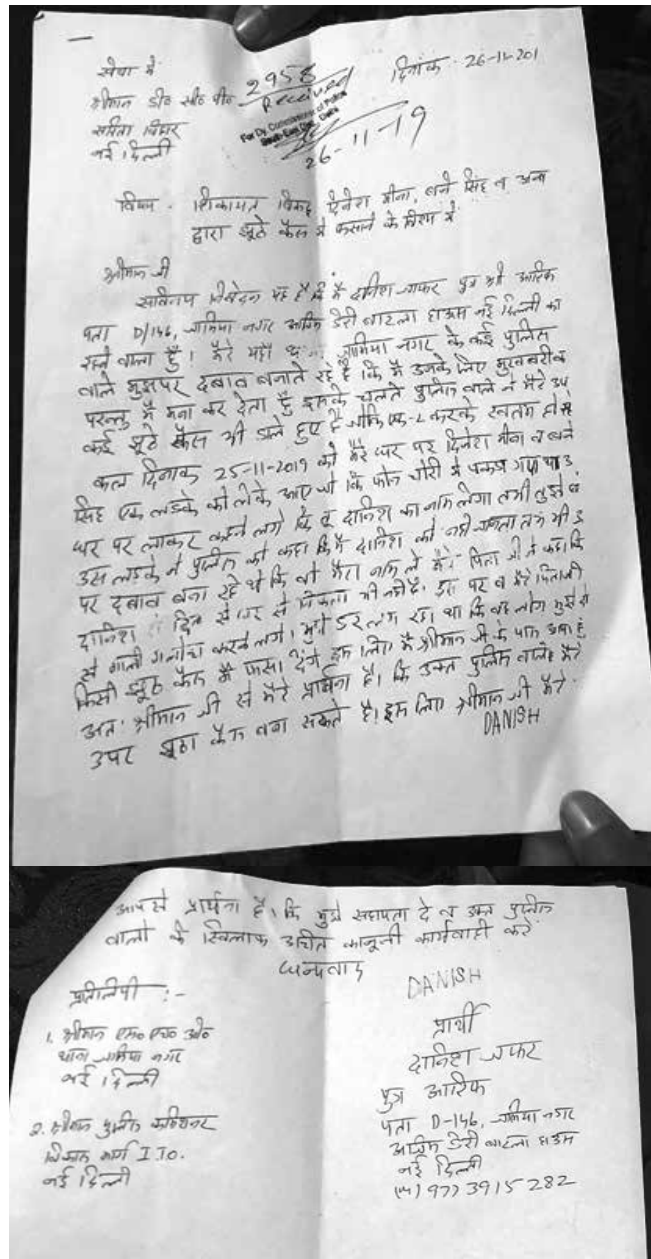 सेवा में
2958
दिनांक - 26-11-201
श्रीमान डी० सी० पी०
Received
सरिता विहार
For Dy. Commissioner of Police
South-East Distt. Delhi
नई दिल्ली
26-11-19
विषय - शिकायत विरूद्ध दिनेश मीना, बने सिंह व अन्य
द्वारा झूठे केस मे फसाने के विषय मे
श्रीमान जी
सविनय निवेदन यह है कि मैं दानिश जफर पुत्र श्री आरिफ
पता D/146, जामिया नगर आसिम डेरी बाटला हाऊस नई दिल्ली का
रहने वाला हूँ। मेरे यहाँ जामिया नगर के कई पुलिस
वाले मुझपर दबाव बनाते रहे है कि मै उनके लिए मुखबरी
परन्तु मै मना कर देता हूँ इसके चलते पुलिस वाले ने मेरे उप
कई झूठे केस भी डाले हुए है जोकि एक-2 करके खतम हो रहे
कल दिनाक 25-11-2019 को मेरे घर पर दिनेश मीना व बने
सिंह एक लडके को लेके आए जो कि फोन चोरी मे पकडा गया था उ
घर पर लाकर कहने लगे कि तू दानिश का नाम लेगा तभी तुझे
उस लडके ने पुलिस को कहा कि मै दानिश को नही जानता तब भी उ
पर दबाव बना रहे थे कि वो मेरा नाम ले मेरे पिता जी ने कहा कि
दानिश दिन से घर से निकला भी नही है। इस पर व मेरे पिताजी
से गाली गलोच करने लगे। मुझे डर लग रहा था कि वह लोग मुझे
किसी झूठे केस मै फसा देंगे इस लिए मै श्रीमान जी के पास आया हूं
अतः श्रीमान जी से मेरे प्रार्थना है। कि उक्त पुलिस वाले मेरे
उपर झूठा केस बना सकते है। इस लिए श्रीमान जी मेरे
DANISH
आपसे प्रार्थना है। कि मुझे सहायता दे व उक्त पुलिस
वालो के खिलाफ उचित कानूनी कार्यवाही करें
धन्यवाद
DANISH
प्रतिलिपी :-
प्रार्थी
1. श्रीमान एस० एच० ओ०
थाना जामिया नगर
नई दिल्ली
दानिश जफर
पुत्र आरिफ
2. श्रीमान पुलिस कमिश्नर
विकास मार्ग I.T.O.
नई दिल्ली
पता D-146, जामिया नगर
आसिम डेरी बाटला हाऊस
नई दिल्ली
(M) 9773915282